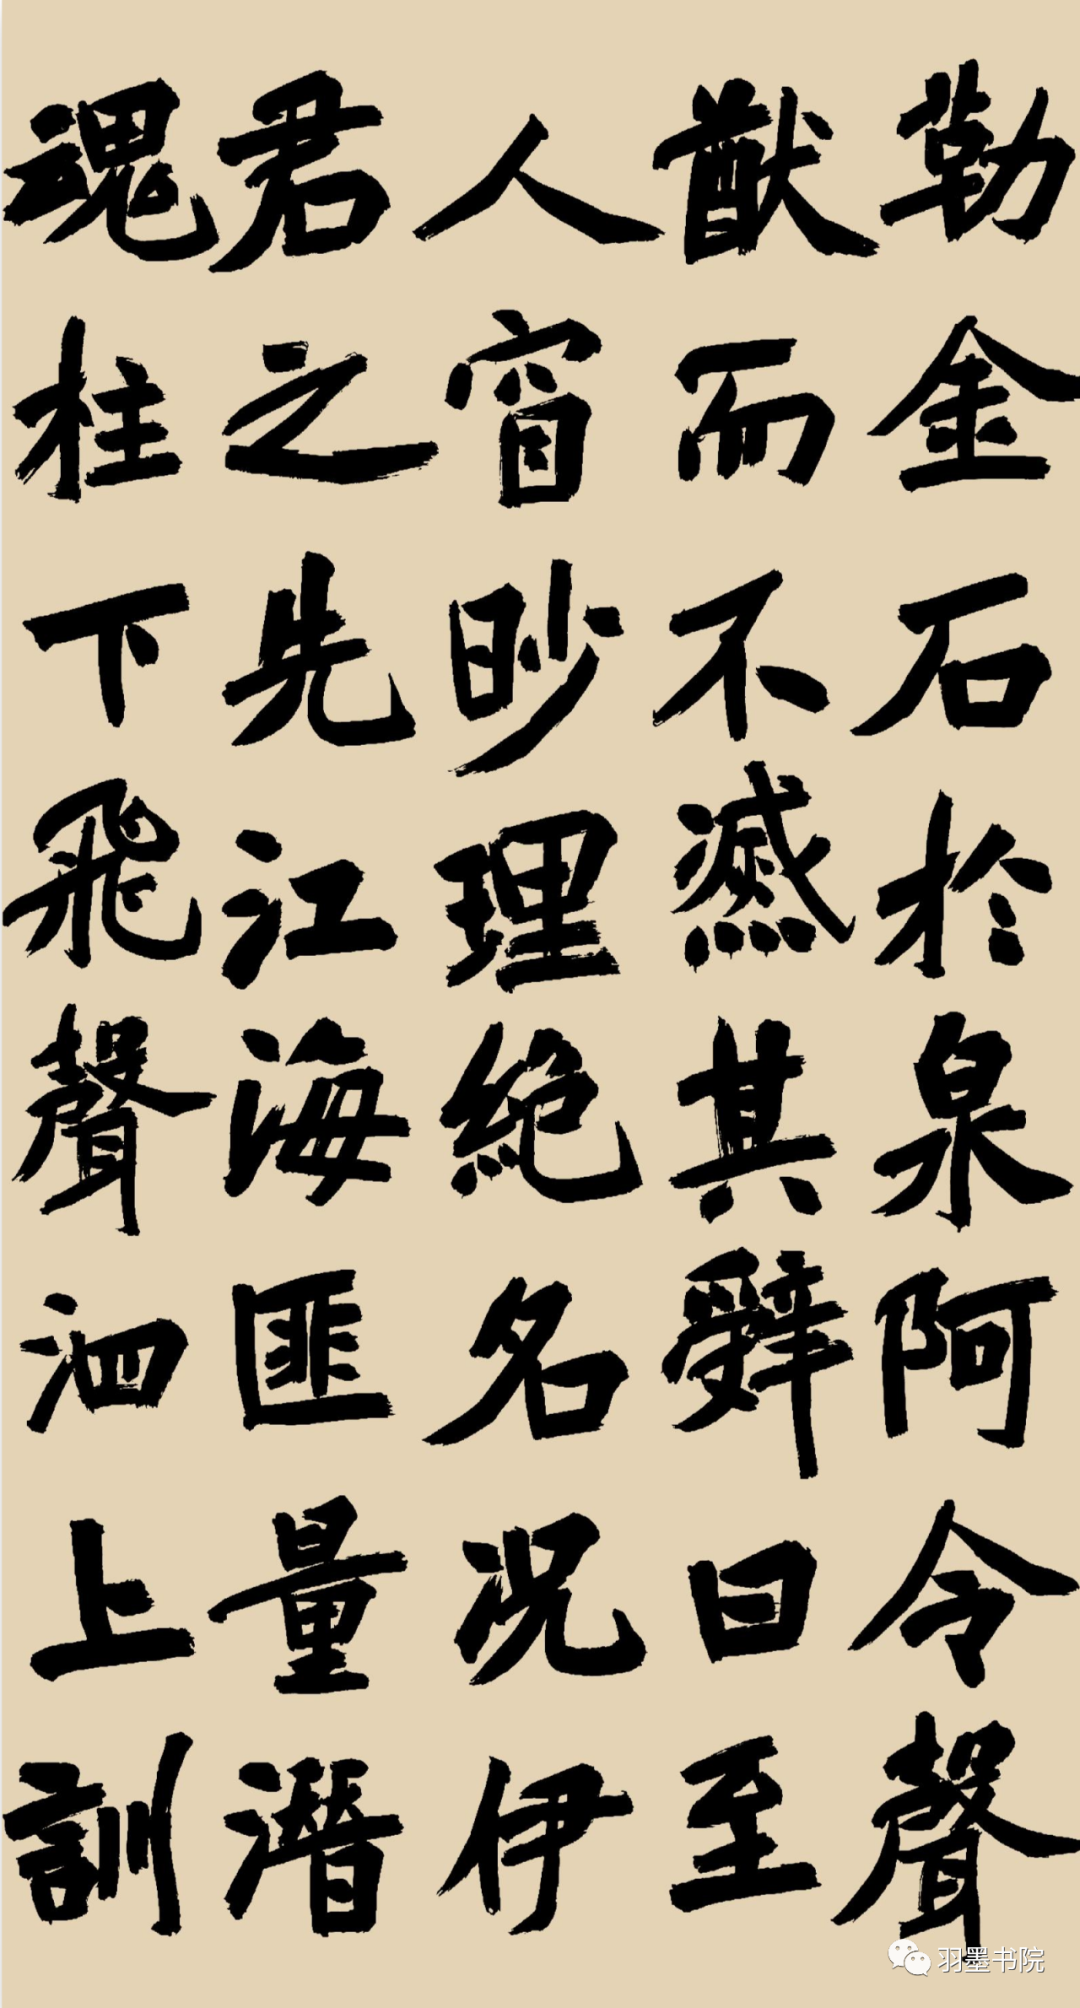 勒金石於泉阿令聲
猷而不㓕其辤曰至
人窅眇理絶名況伊
君之先江海匪量潛
魂柱下飛聲泗上訓
羽墨书院